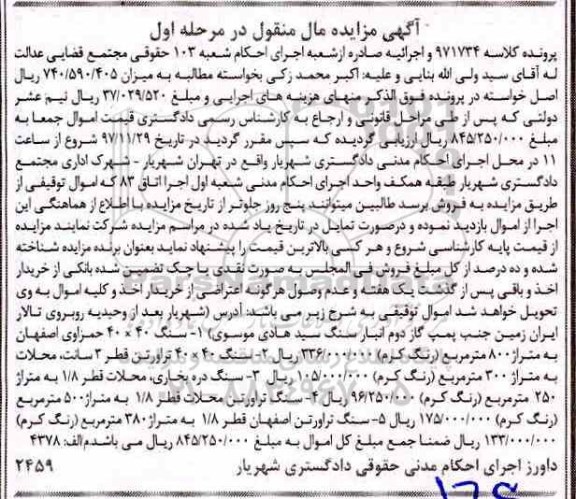 آگهی مزایده مال منقول در مرحله اول
پرونده کلاسه ۹۷۱۷۳۴ و اجرائیه صادره ازشعبه اجرای احکام شعبه ۱۰۳ حقوقی مجتمع قضایی عدالت
له آقای سید ولی الله بنایی و علیه: اکبر محمد زکی بخواسته مطالبه به میزان ۷۴۰/۵۹۰/۴۰۵ ریال
اصل خواسته در پرونده فوق الذکر منهای هزینه های اجرایی و مبلغ ۳۷/۰۲۹/۵۲۰ ریال نیم عشر
دولتی که پس از طی مراحل قانونی و ارجاع به کارشناس رسمی دادگستری قیمت اموال جمعا به
مبلغ ۸۴۵/۲۵۰/۰۰۰ ریال ارزیابی گردیده که سپس مقرر گردید در تاریخ ۹۷/۱۱/۲۹ شروع از ساعت
۱۱ در محل اجرای احکام مدنی دادگستری شهریار واقع در تهران شهریار - شهرک اداری مجتمع
دادگستری شهریار طبقه همکف واحد اجرای احکام مدنی شعبه اول اجرا اتاق ۸۳ که اموال توقیفی از
طریق مزایده به فروش برسد طالبین میتوانند پنج روز جلوتر از تاریخ مزایده با اطلاع از هماهنگی این
اجرا از اموال بازدید نموده و درصورت تمایل در تاریخ یاد شده در مراسم مزایده شرکت نمایند مزایده
از قیمت پایه کارشناسی شروع و هر کسی بالاترین قیمت را پیشنهاد نماید بعنوان برنده مزایده شناخته
شده و ده درصد از کل مبلغ فروش فی المجلس به صورت نقدی یا چک تضمین شده بانکی از خریدار
اخذ و باقی پس از گذشت یک هفته و عدم وصول هرگونه اعتراضی از خریدار اخذ و کلیه اموال به وی
تحویل خواهد شد اموال توقیفی به شرح زیر می باشد: آدرس (شهریار بعد از وحیدیه روبروی تالار
ایران زمین جنب پمپ گاز دوم انبار سنگ سید هادی موسوی) ۱- سنگ ۴۰×۴۰ حمزاوی اصفهان
به متراژ ۸۰۰ مترمربع (رنگ کرم) ۳۳۶/۰۰۰/۰۰۰ ریال ۲- سنگ ۴۰×۴۰ تراورتن قطر ۳ سانت، محلات
به متراژ ۳۰۰ مترمربع (رنگ کرم) ۱۰۵/۰۰۰/۰۰۰ ریال ۳- سنگ دره بخاری، محلات قطر ۱/۸ به متراژ
۲۵۰ مترمربع (رنگ کرم) ۹۶/۲۵۰/۰۰۰ ریال ۴- سنگ تراورتن محلات قطر ۱/۸ به متراژ۵۰۰ مترمربع
(رنگ کرم) ۱۷۵/۰۰۰/۰۰۰ ریال ۵- سنگ تراورتن اصفهان قطر ۱/۸ به متراژ ۳۸۰ مترمربع (رنگ کرم)
۱۳۳/۰۰۰/۰۰۰ ریال ضمنا جمع مبلغ کل اموال به مبلغ ۸۴۵/۲۵۰/۰۰۰ ریال می باشد.م/الف: ۴۳۷۸
داورز اجرای احکام مدنی حقوقی دادگستری شهریار ۲۴۵۹